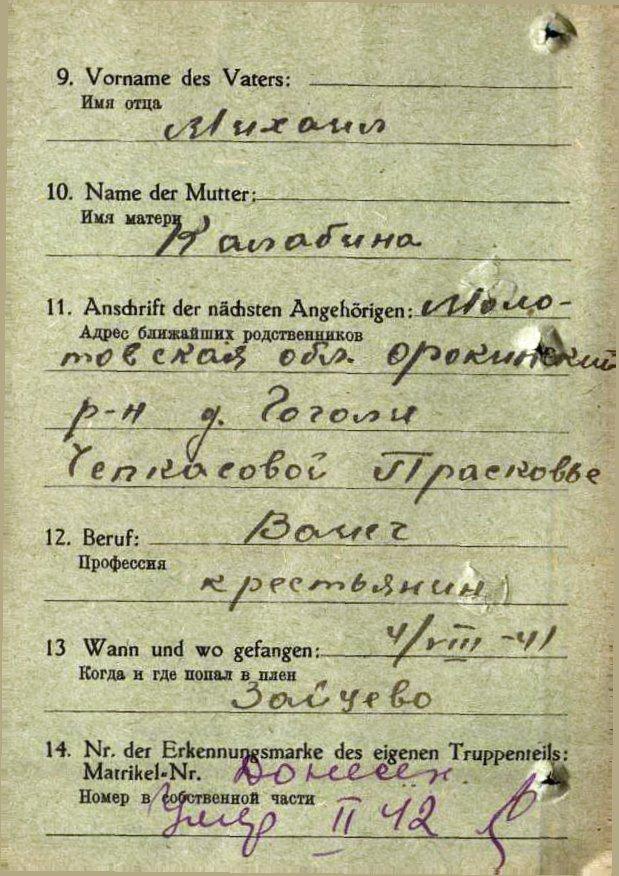 9. Vorname des Vaters:
Имя отца
Михаил
10. Name der Mutter:
Имя матери
Калабина
11. Anschrift der nächsten Angehörigen: Моло-
Адрес ближайших родственников
товская обл. Орокинский
р-н д. Гоголи
Чепкасовой Прасковье
12. Beruf:
Профессия
крестьянин
13 Wann und wo gefangen: 4/VIII -41
Когда и где попал в плен
Зайцево
14. Nr. der Erkennungsmarke des eigenen Truppenteils:
Matrikel-Nr.
Номер в собственной части
Умер II 42